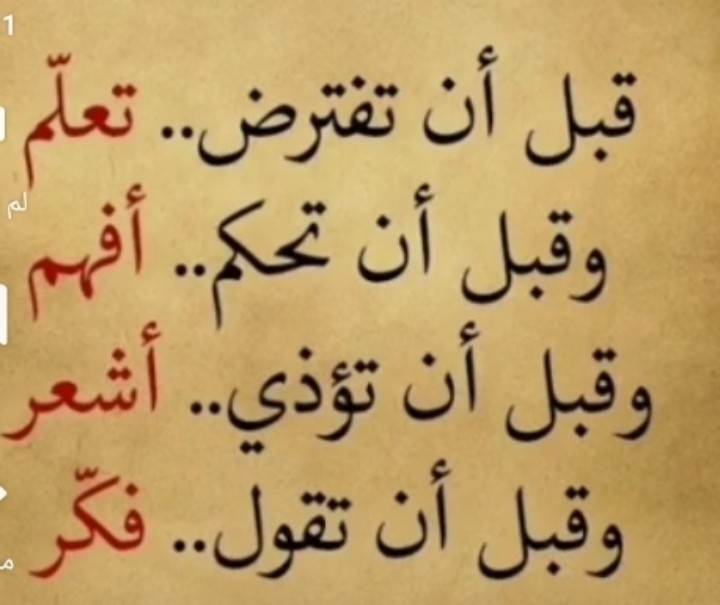 قبل أن تفترض.. تعلّم
وقبل أن تحكم.. أفهم
وقبل أن تؤذي.. أشعر
وقبل أن تقول.. فكّر
1
لم